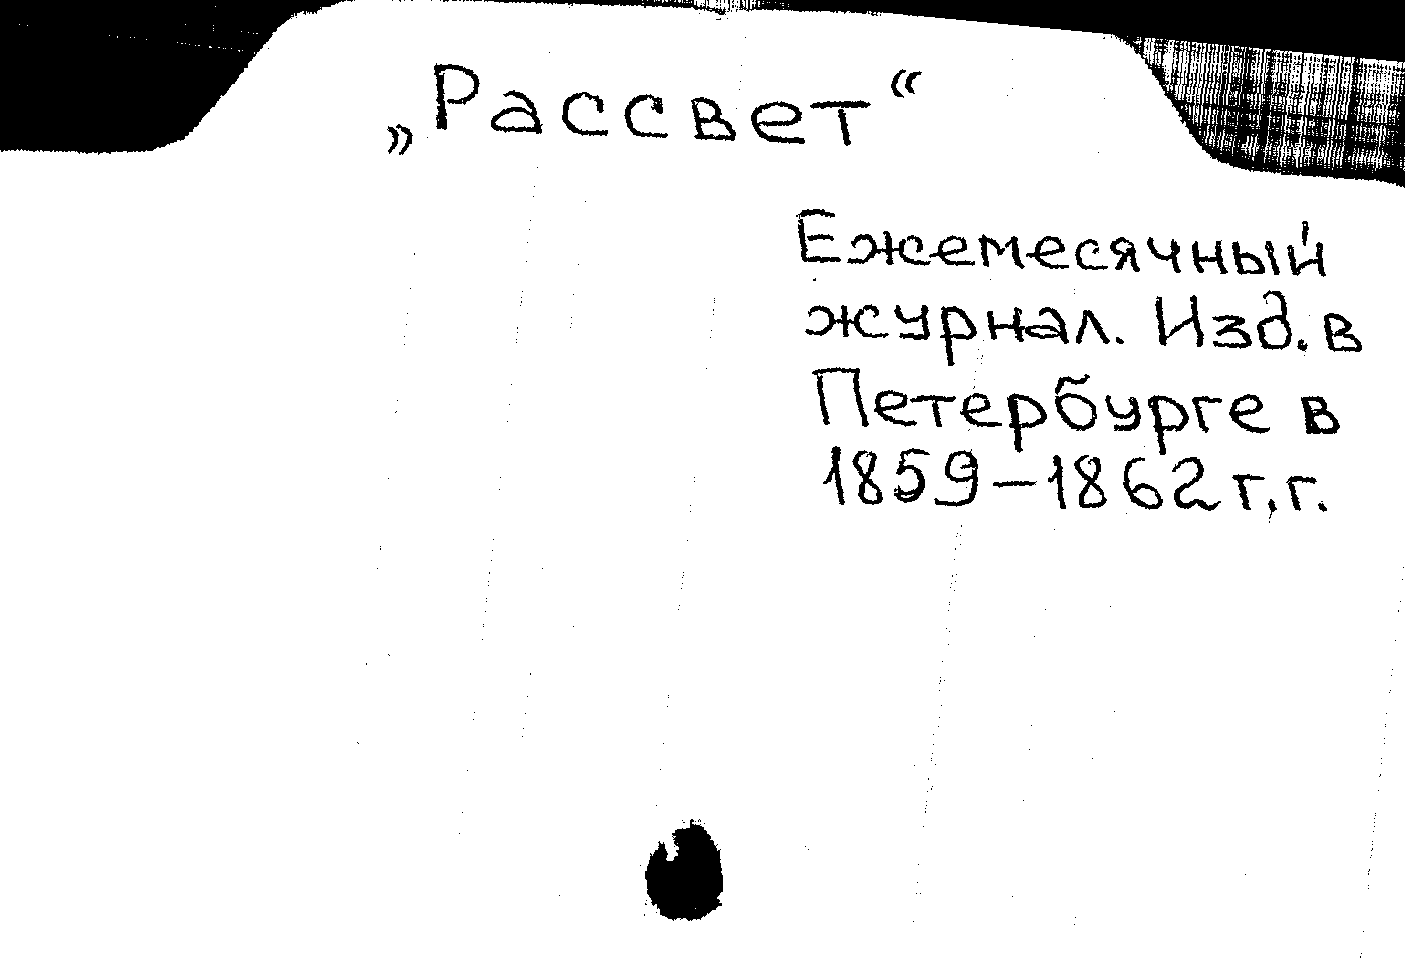 „Рассвет“
Ежемесячный
журнал. Изд. в
Петербурге в
1859–1862 г.г.